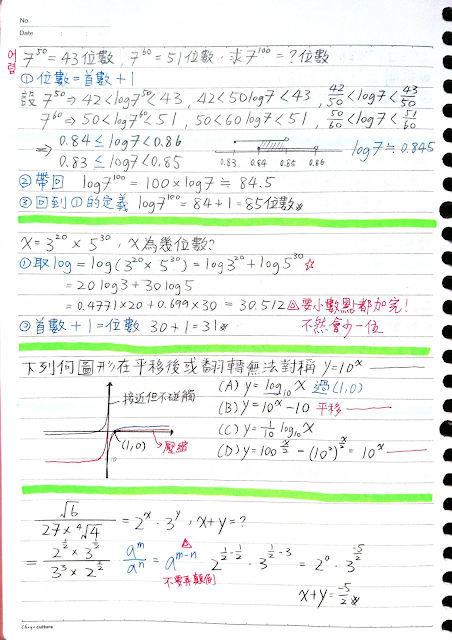 No.
Date
어렵
7⁵⁰ = 43位數, 7⁶⁰ = 51位數. 求7¹⁰⁰ = ? 位數
① 位數 = 首數 + 1
設 7⁵⁰ ⇒ 42 < log7⁵⁰ < 43, 42 < 50log7 < 43, 42/50 < log7 < 43/50
7⁶⁰ ⇒ 50 < log7⁶⁰ < 51, 50 < 60log7 < 51, 50/60 < log7 < 51/60
⇒ 0.84 ≤ log7 < 0.86
0.83 ≤ log7 < 0.85
0.83 0.84 0.85 0.86
log7 ≒ 0.845
② 帶回 log7¹⁰⁰ = 100 × log7 ≒ 84.5
③ 回到①的定義 log7¹⁰⁰ = 84 + 1 = 85位數
x = 3²⁰ × 5³⁰, x為幾位數?
① 取log = log(3²⁰ × 5³⁰) = log3²⁰ + log5³⁰ ☆
= 20log3 + 30log5
= 0.4771×20 + 0.699×30 = 30.512 要小數點都加完!
不然會少一位
② 首數 + 1 = 位數 30 + 1 = 31
下列何圖形在平移後或翻轉無法對稱 y = 10ˣ
接近但不碰觸
(1,0)
壓縮
(A) y = log₁₀x 過(1,0)
(B) y = 10ˣ - 10 平移
(C) y = 1/10 log₁₀x
(D) y = 100^(x/2) - (10²)^(x/2) = 10ˣ
√6 / (27 × ⁴√4) = 2ˣ · 3ʸ, x + y = ?
= (2^(1/2) × 3^(1/2)) / (3³ × 2^(1/2)) aᵐ/aⁿ = aᵐ⁻ⁿ 2^(1/2 - 1/2) · 3^(1/2 - 3) = 2⁰ · 3^(-5/2)
不要弄顛倒
x + y = -5/2